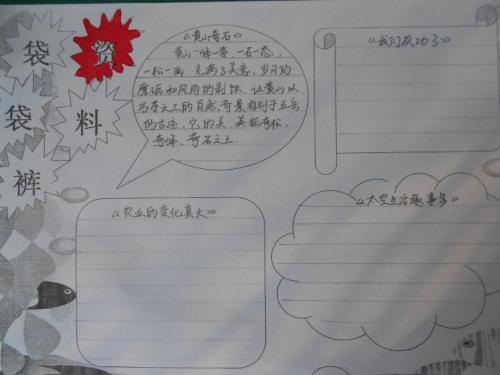 袋
资
袋
料
裤
《黄山奇石》
黄山一峰一姿、一石一态、
一松一画,充满了美意,岁月的
磨砺和风雨的剥蚀,让黄山以
巧夺天工的自然奇景有别于五岳
的古迹,它的美,美在奇松、
奇峰、奇石之上.
《我们成功了》
《农业的变化真大》
《太空生活趣事多》